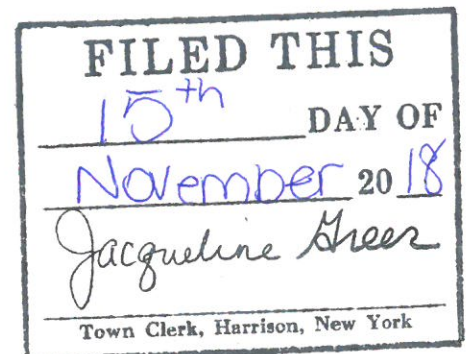 FILED THIS
15th DAY OF
November 20 18
Jacqueline Greer
Town Clerk, Harrison, New York